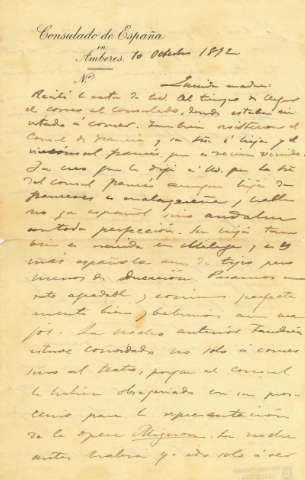 Consulado de España
en
Amberes. 10 Octubre 1892
Nº
Querida madre:
Recibí la carta de Vd. al tiempo de llegar
el correo al consulado, donde estaba in-
vitado á comer. También asistieron el
Consul de Francia y su Sra é hija y el
vice-consul francés que es recien venido.
Ya creo que le dije á Vd. que la Sra
del Consul francés aunque hija de
franceses es malagueña, y habla
no ya español sino andaluz
con toda perfección. La hija tam-
bién es nacida en Málaga, y es
más española aun de tipo pero
menos de dicción. Pasamos un
rato agradable y comimos perfecta-
mente bien, y bebimos aun me-
jor. La noche anterior también
estuve convidado no solo á comer
sino al teatro, porque al consul
le habían obsequiado con un pros-
cenio para la representación
de la opera Mignon. La noche
antes había ido solo á ver